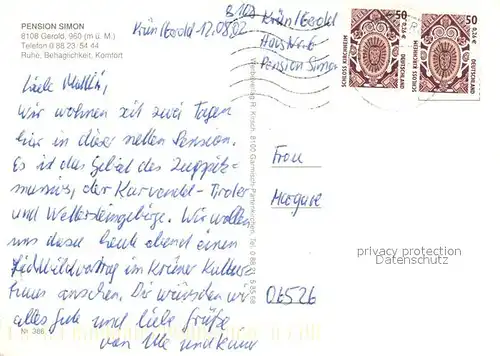 PENSION SIMON
8108 Gerold, 960 (m ü. M.)
Telefon 0 88 23 54 44
Ruhe, Behaglichkeit, Komfort
Krün/Gerold 12.08.02
Krün/Gerold
Haus Nr. 6
Pension Simon
50
0,26 €
DEUTSCHLAND
SCHLOSS KIRCHHEIM
50
0,26 €
DEUTSCHLAND
SCHLOSS KIRCHHEIM
Liebe
Wir wohnen seit zwei Tagen
hier in dieser netten Pension.
Es ist das Gebiet des Zugspitz-
massivs, der Karwendel-Tiroler
und Wettersteingebirge. Wir wollen
uns heute abend einen
Lichtbildvortrag im Krüner Kultur-
haus ansehen. Dir wünschen wir
alles Gute und liebe Grüße
von Ute und
Nr. 386
8100 Garmisch-Partenkirchen, Tel.
Frau
Margare
06526
privacy protection
Datenschutz